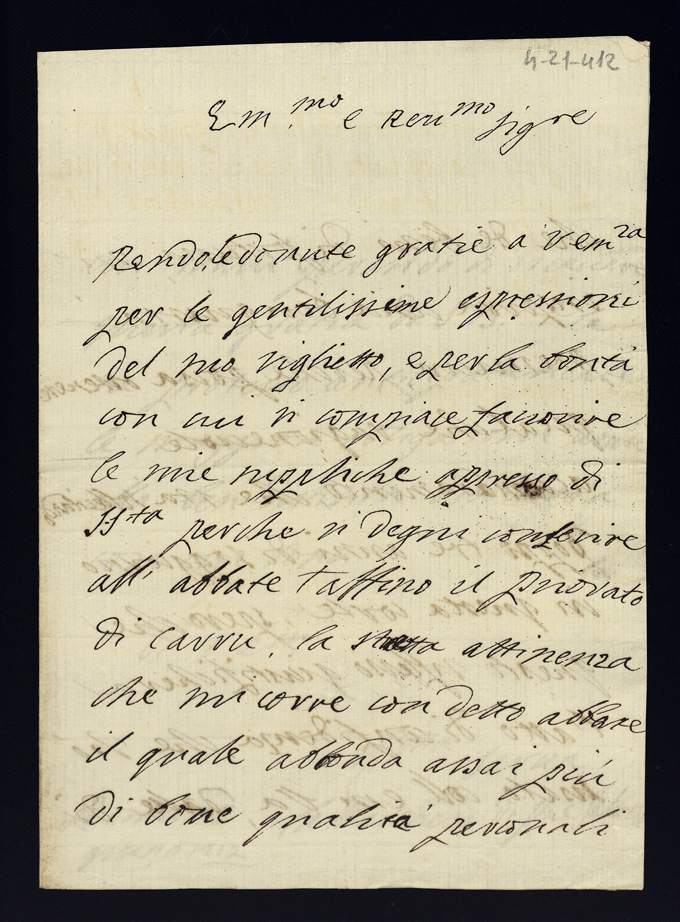 4-21-412
Em.mo e Reu.mo Sig.re
Rendo le douute gratie a V em.za
per le gentilissime espressioni
del suo viglietto, e per la bontà
con cui si compiace fauorire
le mie suppliche appresso di
S S.ta perche si degni conferire
all' abbate Taffino il priorato
di Carru. la stretta attinenza
che mi corre con detto abbate
il quale abbonda assai più
di bone qualità personali